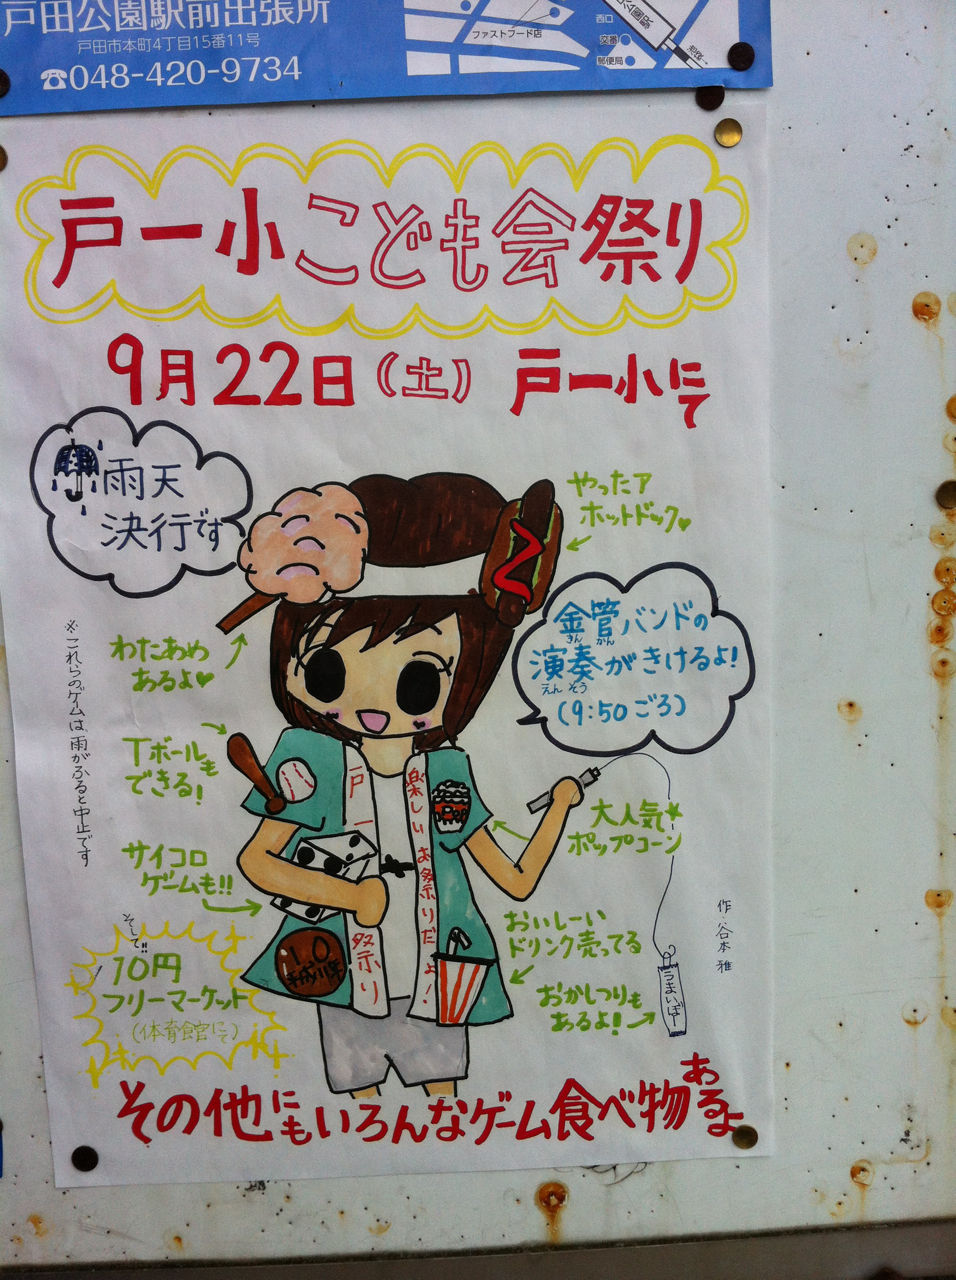 戸田公園駅前出張所
戸田市本町4丁目15番11号
☎048-420-9734
ファストフード店
西口
交番
郵便局
戸一小こども会祭り
9月22日(土) 戸一小にて
雨天
決行です
やったア
ホットドック♥
金管バンドの
きん かん
演奏がきけるよ!
えん そう
(9:50ごろ)
わたあめ
あるよ♥
※これらのゲームは、雨がふると中止です
Tボールも
できる!
サイコロ
ゲームも!!
大人気★
ポップコーン
戸一
祭り
楽しいお祭りだよ!
POP
10
平成11年
そして!!
10円
フリーマーケット
(体育館にて)
おいしーい
ドリンク売ってる
おかしつりも
あるよ!
うまいぼー
作・谷本 雅
その他にもいろんなゲーム食べ物あるよ